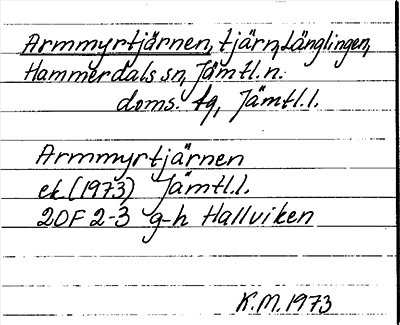 Armmyrtjärnen, tjärn, Länglingen,
Hammerdals sn, Jämtl.n.
doms. tg, Jämtl.l.
Armmyrtjärnen
ek (1973) Jämtl.l.
20F 2-3 g-h Hallviken
K.M. 1973